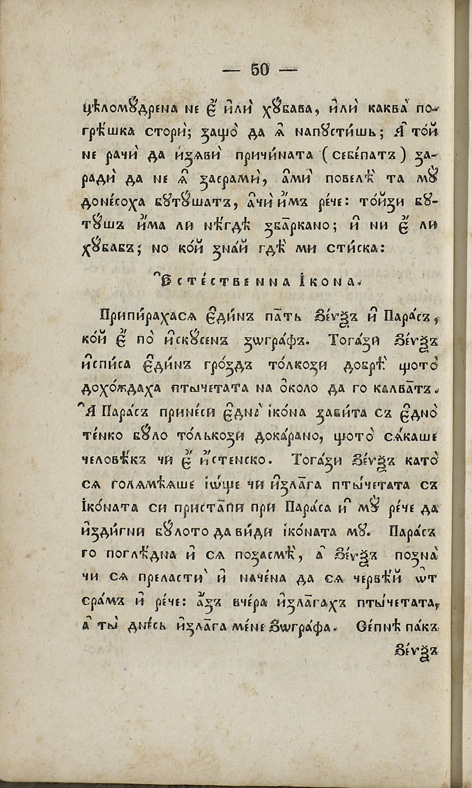 — 50 —
цѣломꙋ́дрена не є҆̀ и҆лѝ хꙋ́бава, и҆лѝ каква̀ по-
грѣ́шка сторѝ; защо̀ да ѧ҆̀ напꙋ́стишь; А҆ то́й
не рачѝ да и҆зѧвѝ причи́ната (себе́патъ) за-
радѝ да не ѧ҆̀ засрамѝ, а҆мѝ повелѐ та мꙋ̀
доне́соха бꙋтꙋ́шатъ, а҆чѝ и҆̀мъ ре́че: то́йзи бꙋ-
тꙋ́шъ и҆́ма ли нѣ́гдѣ зба́ркано; и҆ нѝ є҆̀ ли
хꙋ́бавъ; но ко́й зна́й гдѣ̀ ми сти́ска:
Е҆сте́ственна І҆ко́на.
Припи́рахасѧ є҆ди́нъ па́тъ Зе́ѵѯъ и҆ Пара́съ,
ко́й є҆̀ по̀ и҆скꙋ́сенъ зѡгра́фъ. Тога́зи Зе́ѵѯъ
и҆спи́са є҆ди́нъ гро́здъ то́лкози добрѣ̀ щото̀
дохо́ждаха пты́четата на ѻ҆́коло да го калва́тъ.
А҆ Пара́съ принесѝ є҆дна̀ і҆ко́на зави́та съ є҆дно̀
те́нко бꙋ́ло то́лькози дока́рано, щото̀ сѧ́каше
человѣ́къ чи є҆̀ и҆́стенско. Тога́зи Зе́ѵѯъ като̀
сѧ голѧмѣ́ѧше і҆ѡ́ще чи и҆зла́га пты́четата съ
І҆ко́ната си пристапѝ при Пара́са и҆ мꙋ̀ ре́че да
и҆зди́гни бꙋ́лото да ви́ди і҆ко́ната мꙋ. Пара́съ
го поглѣ́дна и҆ сѧ позасмѣ̀, а҆ Зе́ѵѯъ позна̀
чи сѧ преластѝ и҆ наче́на да сѧ черве́й ѿ
сра́мъ и҆ ре́че: а҆́зъ вче́ра и҆зла́гахъ пты́четата,
а҆ ты̀ дне́сь и҆зла́га ме́не Зѡгра́фа. Сепнѐ па́къ
Зе́ѵѯъ